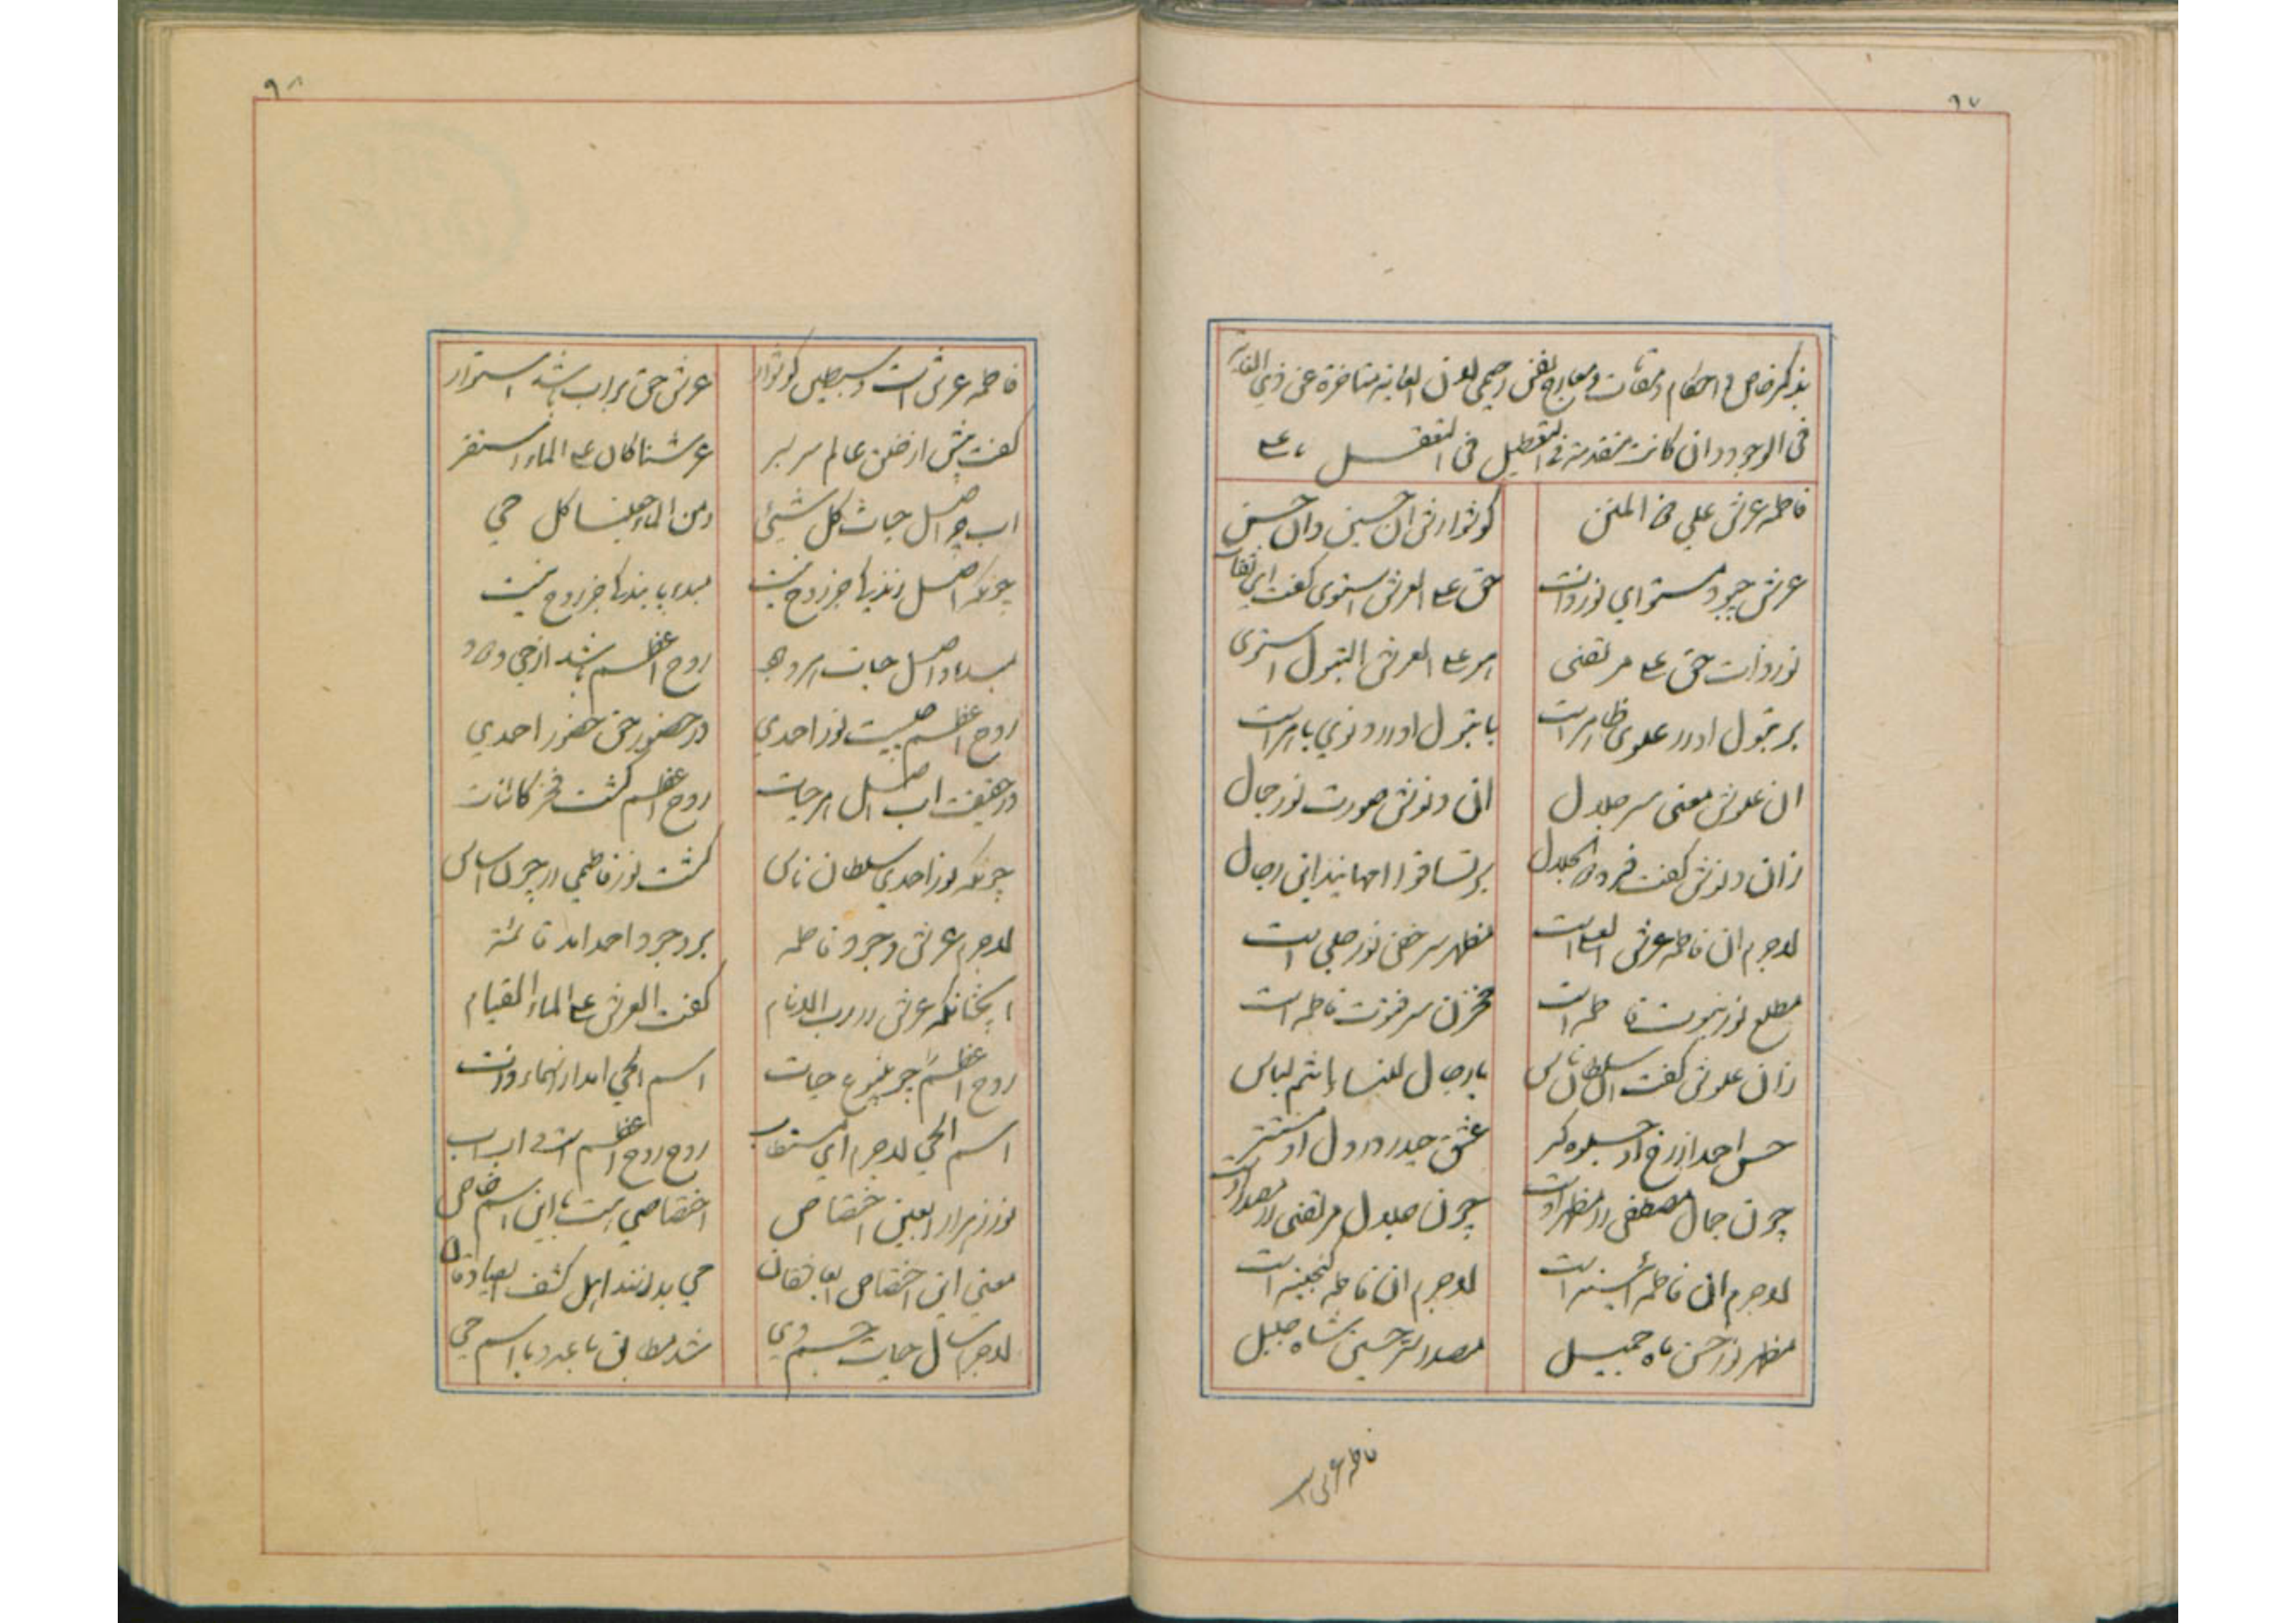 ۹۷
بذکر خاص و احکام و مقامات و معارج یعنی رحیمی لان الغایة متاخرة عن ذی الغایة
فی الوجود و ان کانت متقدمة فی التعطیل فی التعقل
فاطمه عرش علی ذو المنن گوشوارش آن حسین و آن حسن
عرش چبود مستوای نور ذات حق علی العرش استوی گفت ای ثقات
نور ذات حق علی مرتضی امر علی العرش البتول استوی
بر بتول او در علوی ظاهر است با بتول او در دنوی باهر است
آن علوش معنی سر جلال آن دنوش صورت نور جمال
زان دنوش گفت فرد ذو الجلال بر نسا قوامهایند این رجال
لاجرم آن فاطمه عرش العلاست مظهر سر خفی نور جلی است
مطلع نور نبوت فاطمه است مخزن سر فتوت فاطمه است
زان علوش گفت آن سلطان ناس یا رجال للنسا انتم لباس
حسن احمد از رخ او جلوه گر عشق حیدر در دل او مستتر
چون جمال مصطفی را مظهر اوست چون جلال مرتضی را مصدر اوست
لاجرم آن فاطمه آئینه است لاجرم آن فاطمه گنجینه است
مظهر نور حسن ماه جمیل مصدر سر حسین شاه جلیل
فاطمه عرش است
۹۸
فاطمه عرش است و سبطین گوشوار عرش حق بر آب باشد استوار
گفت پیش از خلق عالم سر بسر عرشنا کان علی الماء استقر
آب چو اصل حیات کل شیئی و من الماء جعلنا کل حی
چونکه اصل زندگیها جز روح نیست مبداء پایندگیها جز روح نیست
مبداء و اصل حیات هر وجود روح اعظم باشد از حی ودود
روح اعظم چیست نور احمدی در حضور حق حضور احمدی
در حقیقت آب اصل هر حیات روح اعظم گشت فخر کائنات
چونکه نور احمدی سلطان ناس گشت نور فاطمی را چون اساس
لاجرم عرش وجود فاطمه بر وجود احمد آمد قائمه
آنچنانکه عرش را رب الانام گفت العرش علی الماء القیام
روح اعظم چو ینبوع حیات اسم الحی آمد از اسماء ذات
اسم الحی لاجرم ای مستطاب روح روح اعظم است و آب آب
نور زهرا را بعین اختصاص اختصاصی هست با این اسم خاص
معنی این اختصاص ای با تقان می بدانند اهل کشف ای صادقان
لاجرم سال حیات جسم وی شد مطابق با عدد با اسم حی